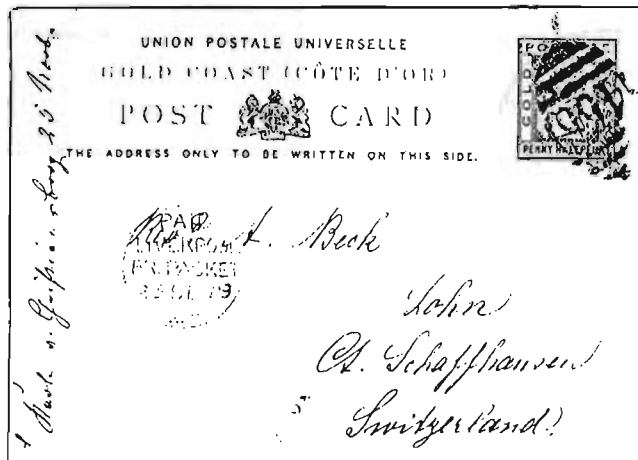 UNION POSTALE UNIVERSELLE
GOLD COAST (CÔTE D'OR)
POST CARD
THE ADDRESS ONLY TO BE WRITTEN ON THIS SIDE.
GOLD
PENNY HALFPENNY
PAID
LIVERPOOL
BR. PACKET
79
A. Beck
Lohn
Ct. Schaffhausen
Switzerland
25